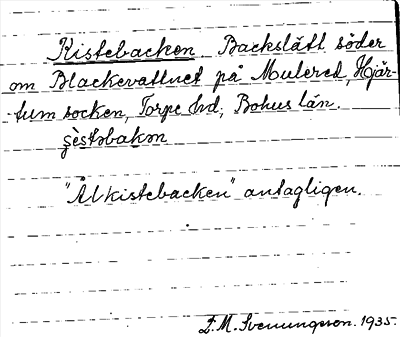 Kistebacken Backslått söder
om Blackevattnet på Mulered, Hjär-
-tum socken, Torpe hd, Bohus län.
"Ålkistebacken" antagligen.
F. M. Svenungsson. 1935.